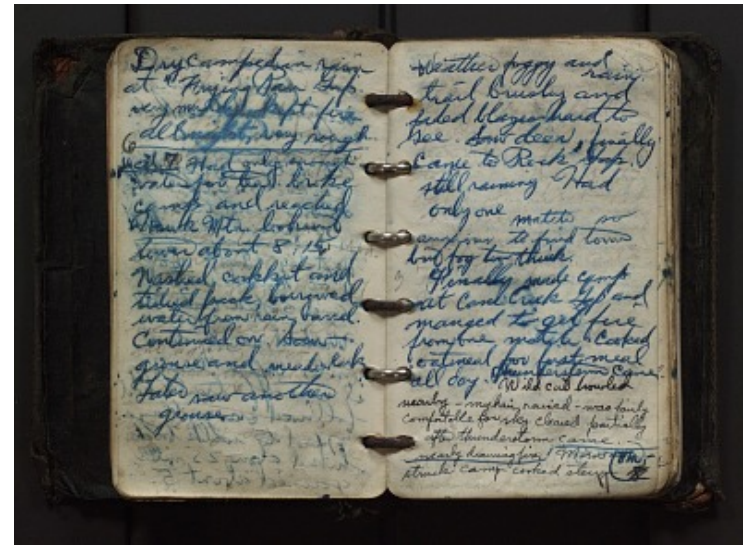 Dry camped in rain
at "Frying Pan Gap
very much kept fire
all night, very rough
6
7 Had only enough
water for tea broke
camp and reached
Mtn. lookout
tower about 8:15
Washed cookkit and
tidied pack, borrowed
water from rain barrel.
Continued on saw
grouse and
Later saw another
grouse
Weather foggy and
rain.
trail brushy and
sided blazes hard to
see. Saw deer, finally
came to Rock Gap.
still raining Had
only one match so
on to find town
but fog too thick
Finally made camp
at Gap and
manged to get fire
from one match. Cooked
oatmeal for first meal
all day. thunderstorm came.
Wild cat howled
nearby - my hair raised - was fairly
comfortable for sky cleared partially
after thunderstorm came.
nearly drowning fire
8
struck camp cooked